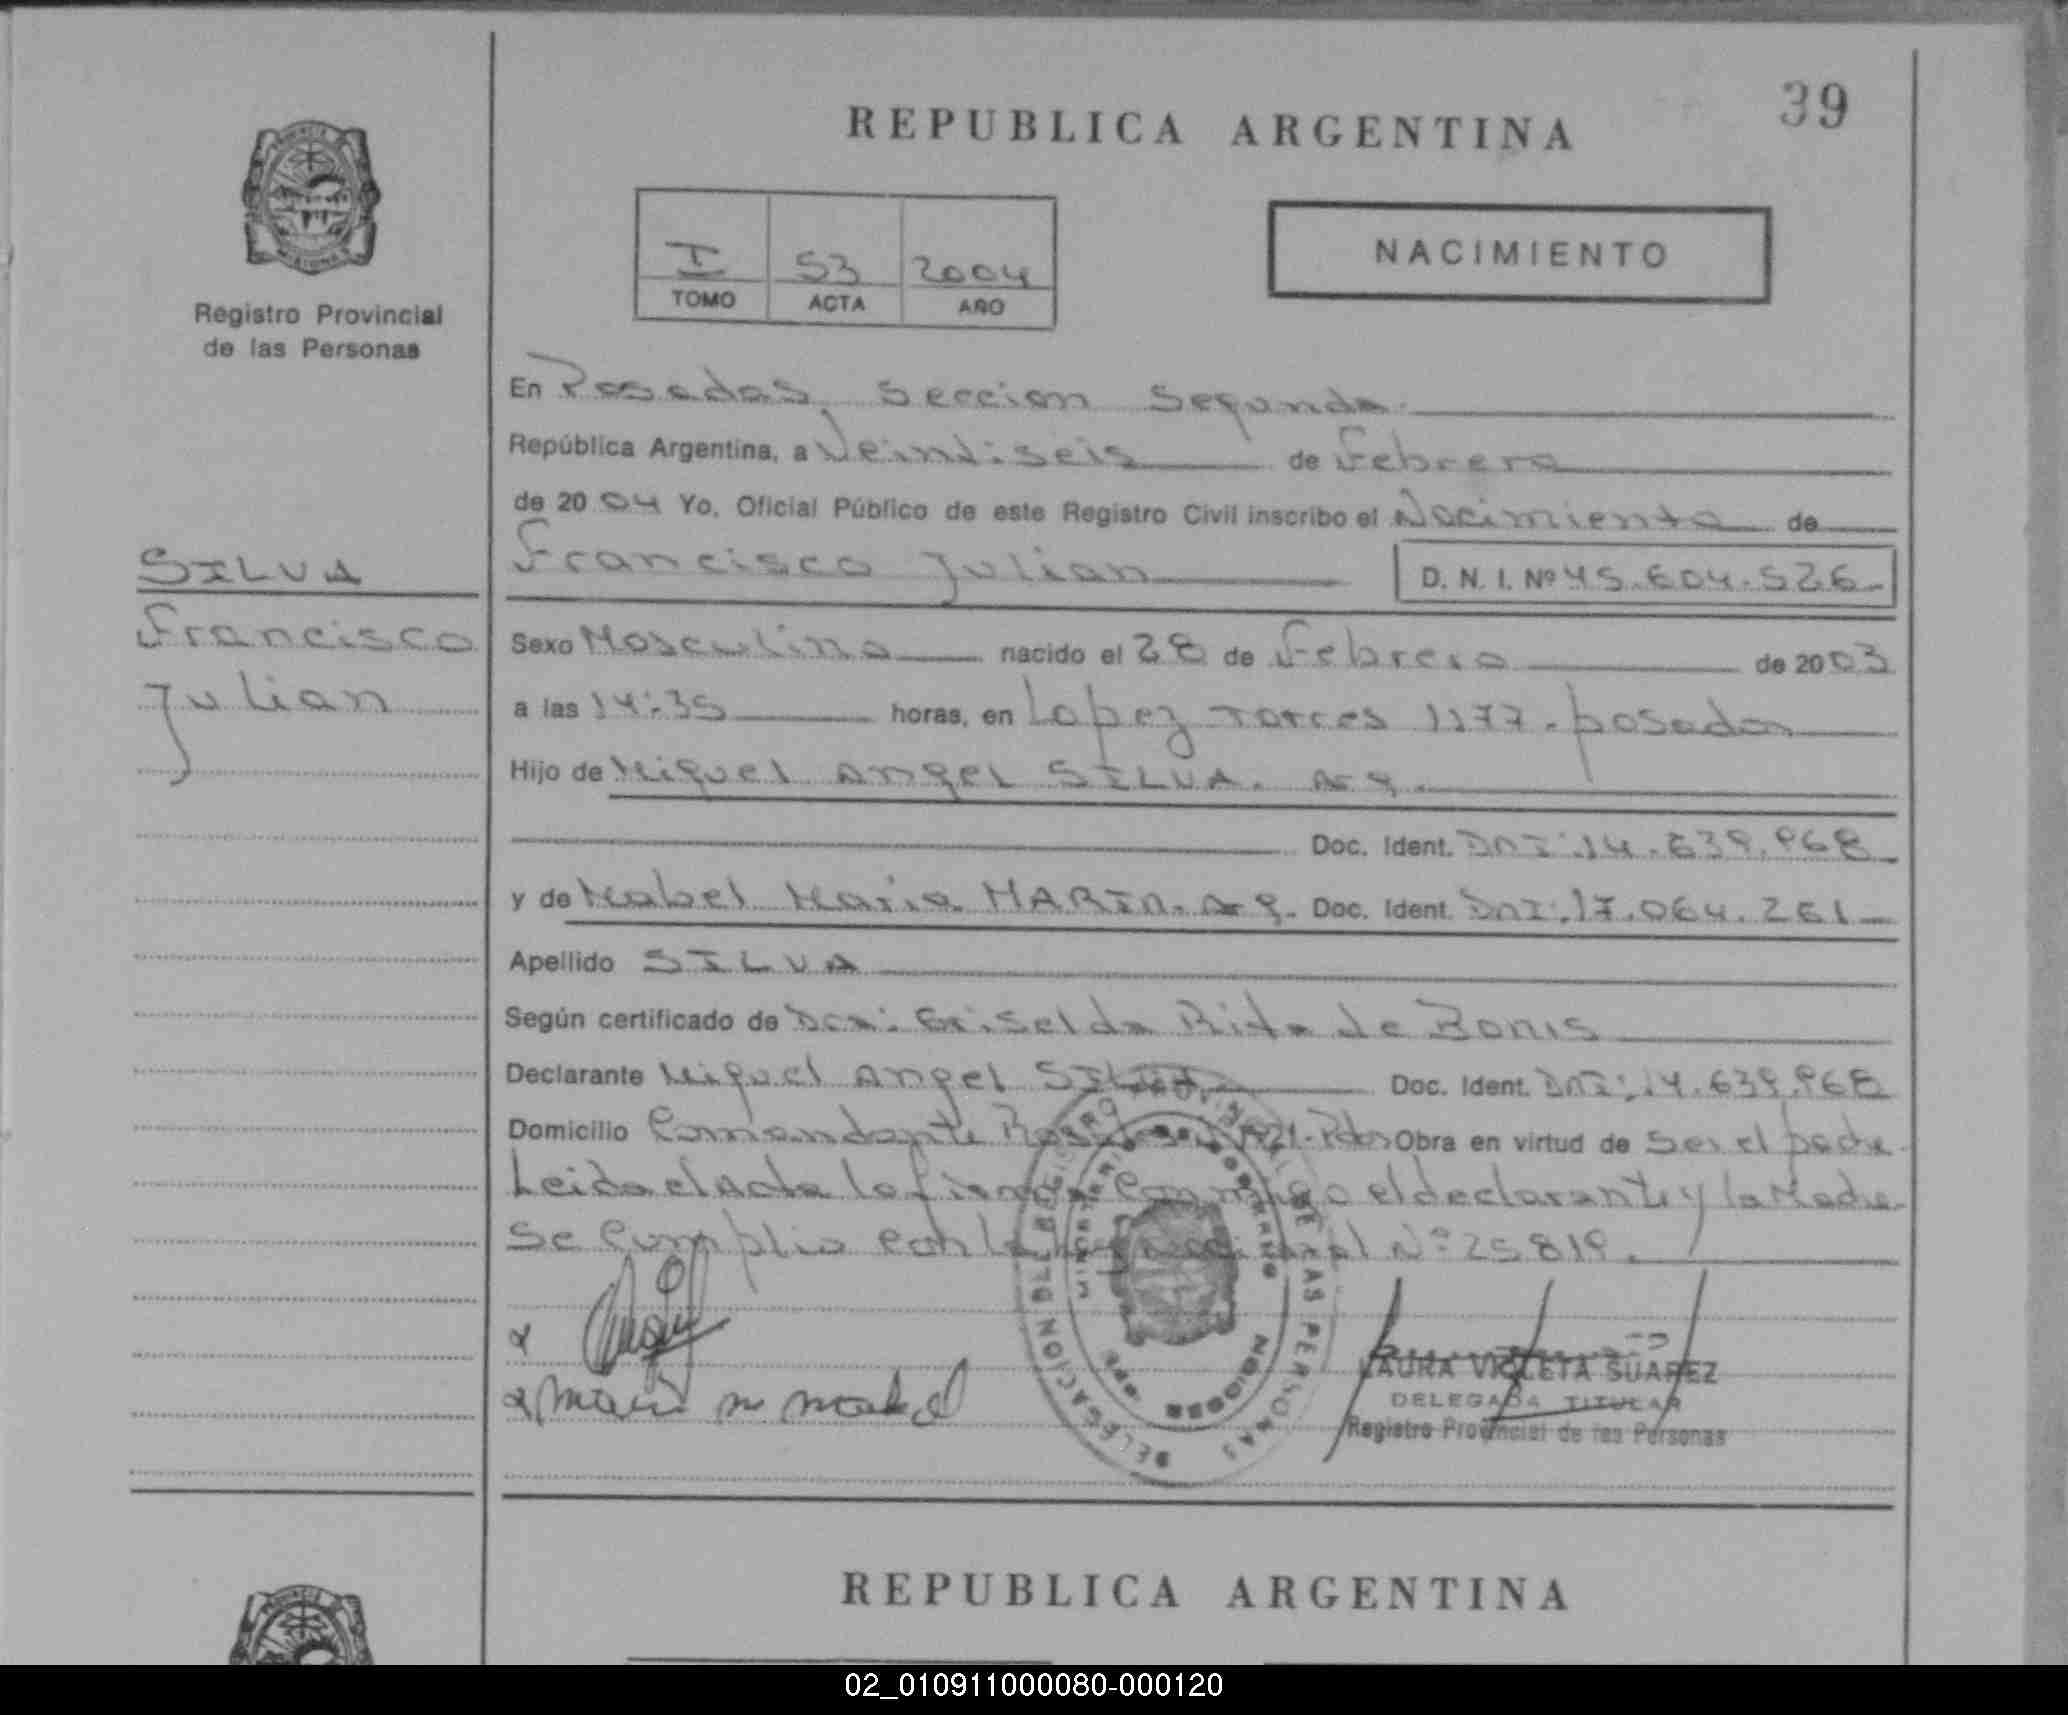 39
REPUBLICA ARGENTINA
Registro Provincial
de las Personas
I 53 2004
TOMO ACTA AÑO
NACIMIENTO
En Posadas, Seccion Segunda
República Argentina, a Veintiseis de Febrero
de 2004 Yo, Oficial Público de este Registro Civil inscribo el Nacimiento de
SILVA
Francisco
Julian
Francisco Julian D. N. I. Nº 45.604.526
Sexo Masculino nacido el 28 de Febrero de 2003
a las 14:35 horas, en Lopez Torres 1177 - posadas
Hijo de Miguel Angel SILVA. Arg.
Doc. Ident. DNI: 14.639.968
y de Mabel Maria MARIN. Arg. Doc. Ident. DNI: 17.064.261
Apellido SILVA
Según certificado de Dra: Griselda Rita de Bonis
Declarante Miguel Angel SILVA Doc. Ident. DNI: 14.639.968
Domicilio Comandante Pdas Obra en virtud de ser el padre
Leida el Acta la firma conmigo el declarante y la Madre
Se Cumplio con la Ley Nacional Nº 25819.
LAURA VIOLETA SUAREZ
DELEGADA TITULAR
Registro Provincial de las Personas
DELEGACION DEL REGISTRO PROVINCIAL DE LAS PERSONAS
MINISTERIO DE GOBIERNO
REPUBLICA ARGENTINA
02_010911000080-000120